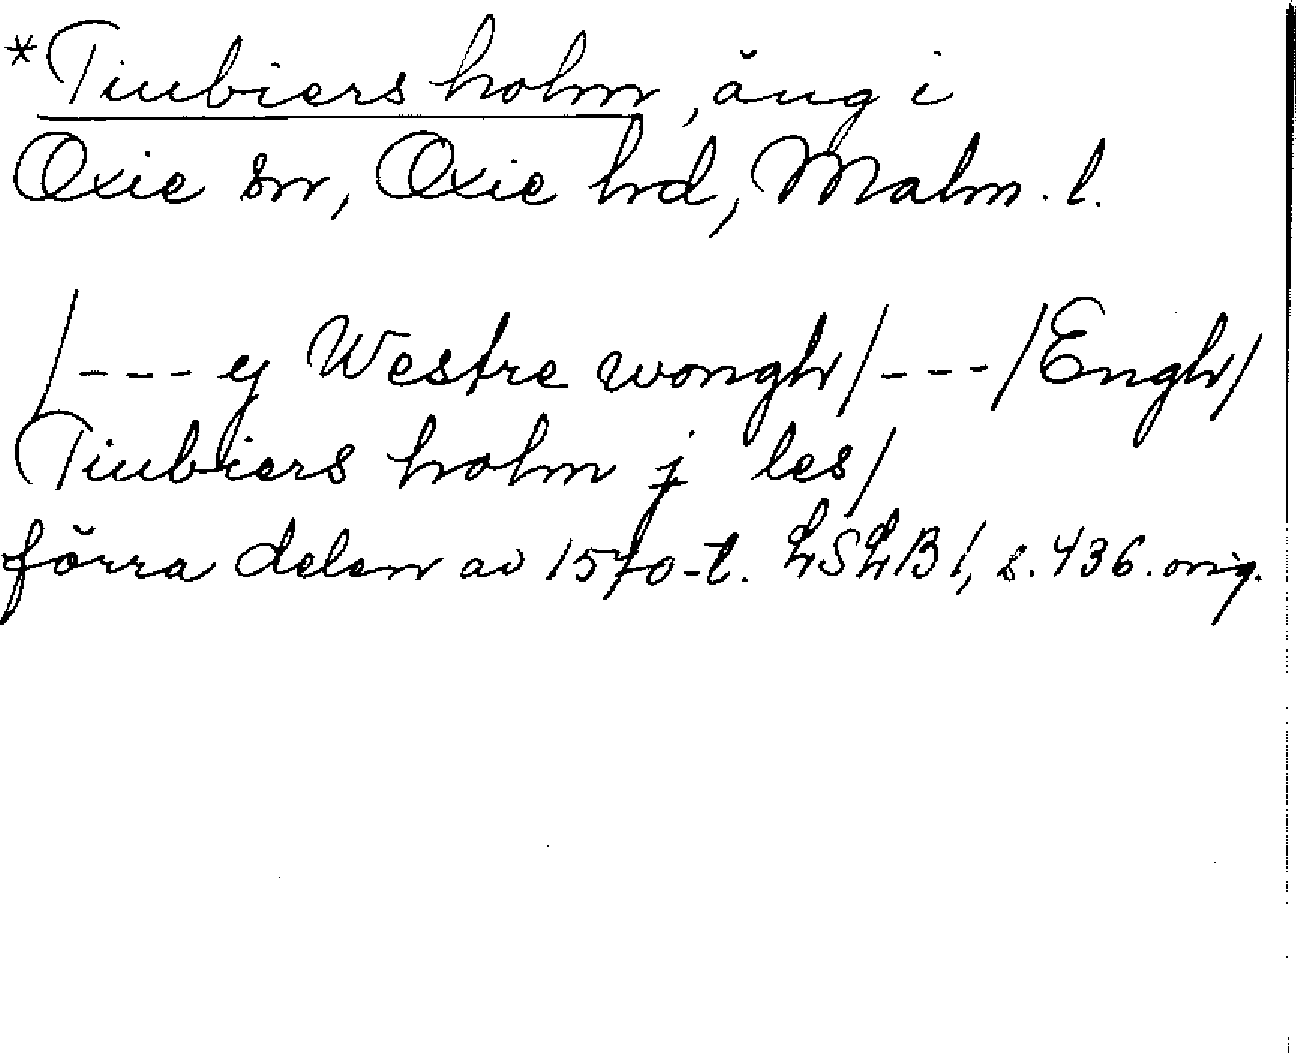 *Tiubiers holm, äng i
Oxie sn, Oxie hd, Malm. l.
/--- y Westre wongh/---/Engh/
Tiubiers holm j les/
förra delen av 1570-t. LSLB 1, s. 436. orig.